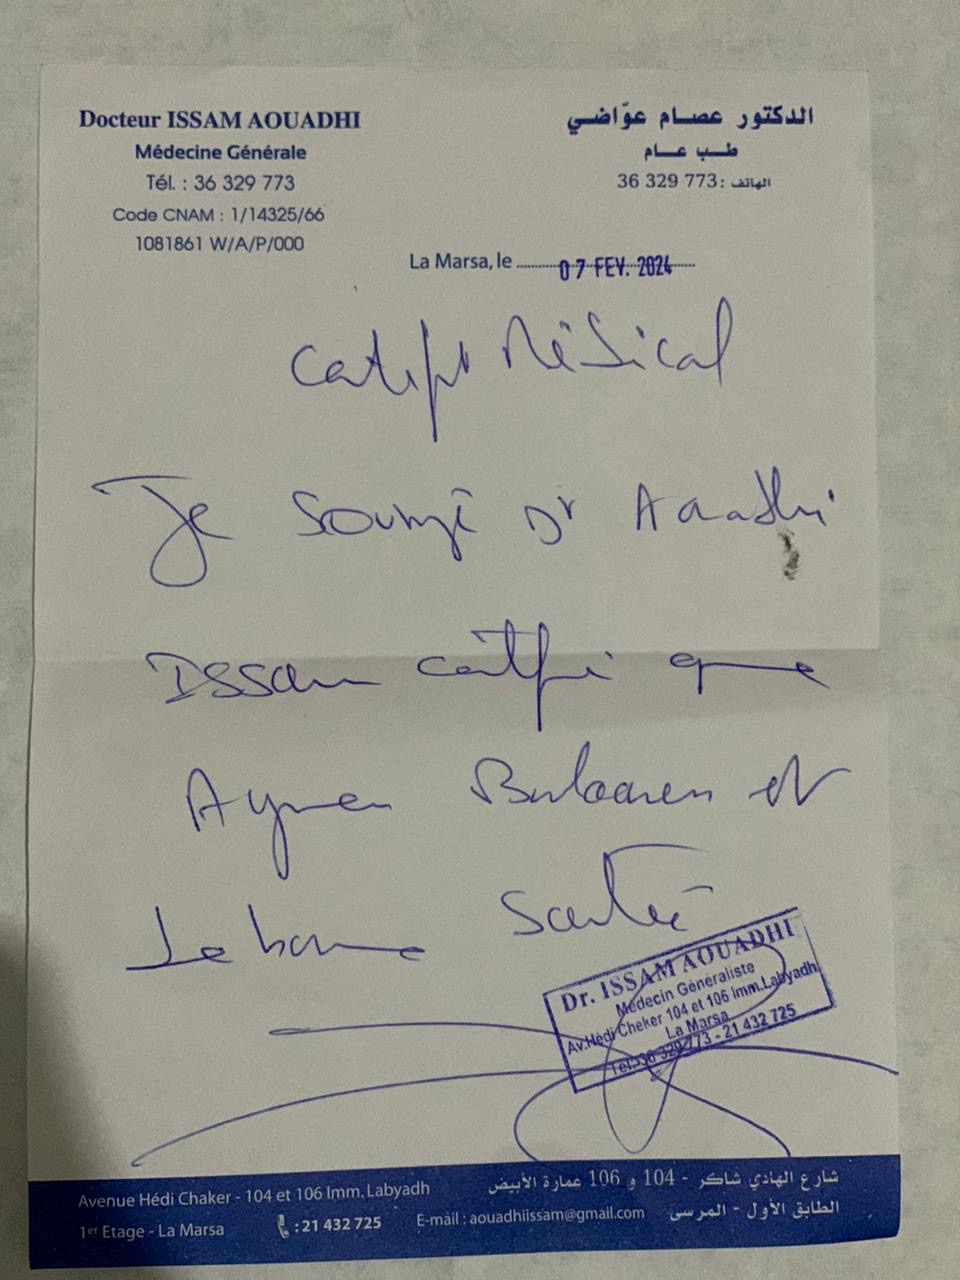 Docteur ISSAM AOUADHI
Médecine Générale
Tél. : 36 329 773
Code CNAM : 1/14325/66
1081861 W/A/P/000
الدكتور عصام عوّاضي
طب عام
الهاتف : 36 329 773
La Marsa, le 07 FEV. 2024
Médical
Je Dr Aouadhi
Issam que
Aymen et
de bonne Santé
Dr. ISSAM AOUADHI
Médecin Généraliste
Av.Hédi Cheker 104 et 106 Imm.Labyadh
La Marsa
Tél:36 329 773 - 21 432 725
Avenue Hédi Chaker - 104 et 106 Imm. Labyadh
1er Etage - La Marsa
: 21 432 725
E-mail : aouadhiissam@gmail.com
شارع الهادي شاكر - 104 و 106 عمارة الأبيض
الطابق الأول - المرسى